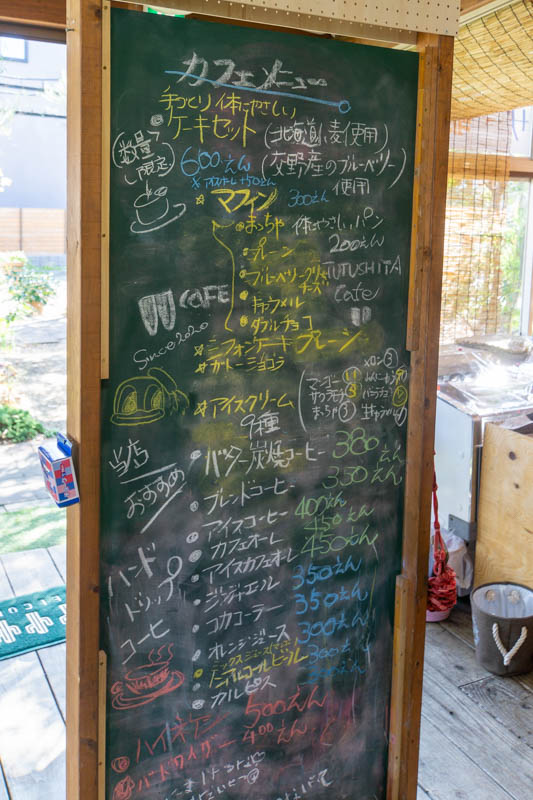 カフェメニュー
手づくり体にやさしい
ケーキセット (北海道小麦使用)
数量限定
600えん (交野産のブルーベリー)
使用
マフィン 300えん
まっちゃ 体にやさしいパン
プレーン 200えん
ブルーベリークリームチーズ TUTUSHITA
キャラメル Cafe
ダブルチョコ
CAFE
Since 2020
シフォンケーキ プレーン
ガトーショコラ
アイスクリーム
9種
メロン
マンゴー
まっちゃ
当店
おすすめ
バター炭焼コーヒー 380えん
ブレンドコーヒー 350えん
アイスコーヒー 400えん
カフェオーレ 450えん
アイスカフェオーレ 450えん
ジンジャエール 350えん
コカコーラー 350えん
オレンジジュース 300えん
ミックスジュース
ノンアルコールビール
カルピス
ハンド
ドリップ
コーヒー
ハイネケン 500えん
バードワイザー 400えん